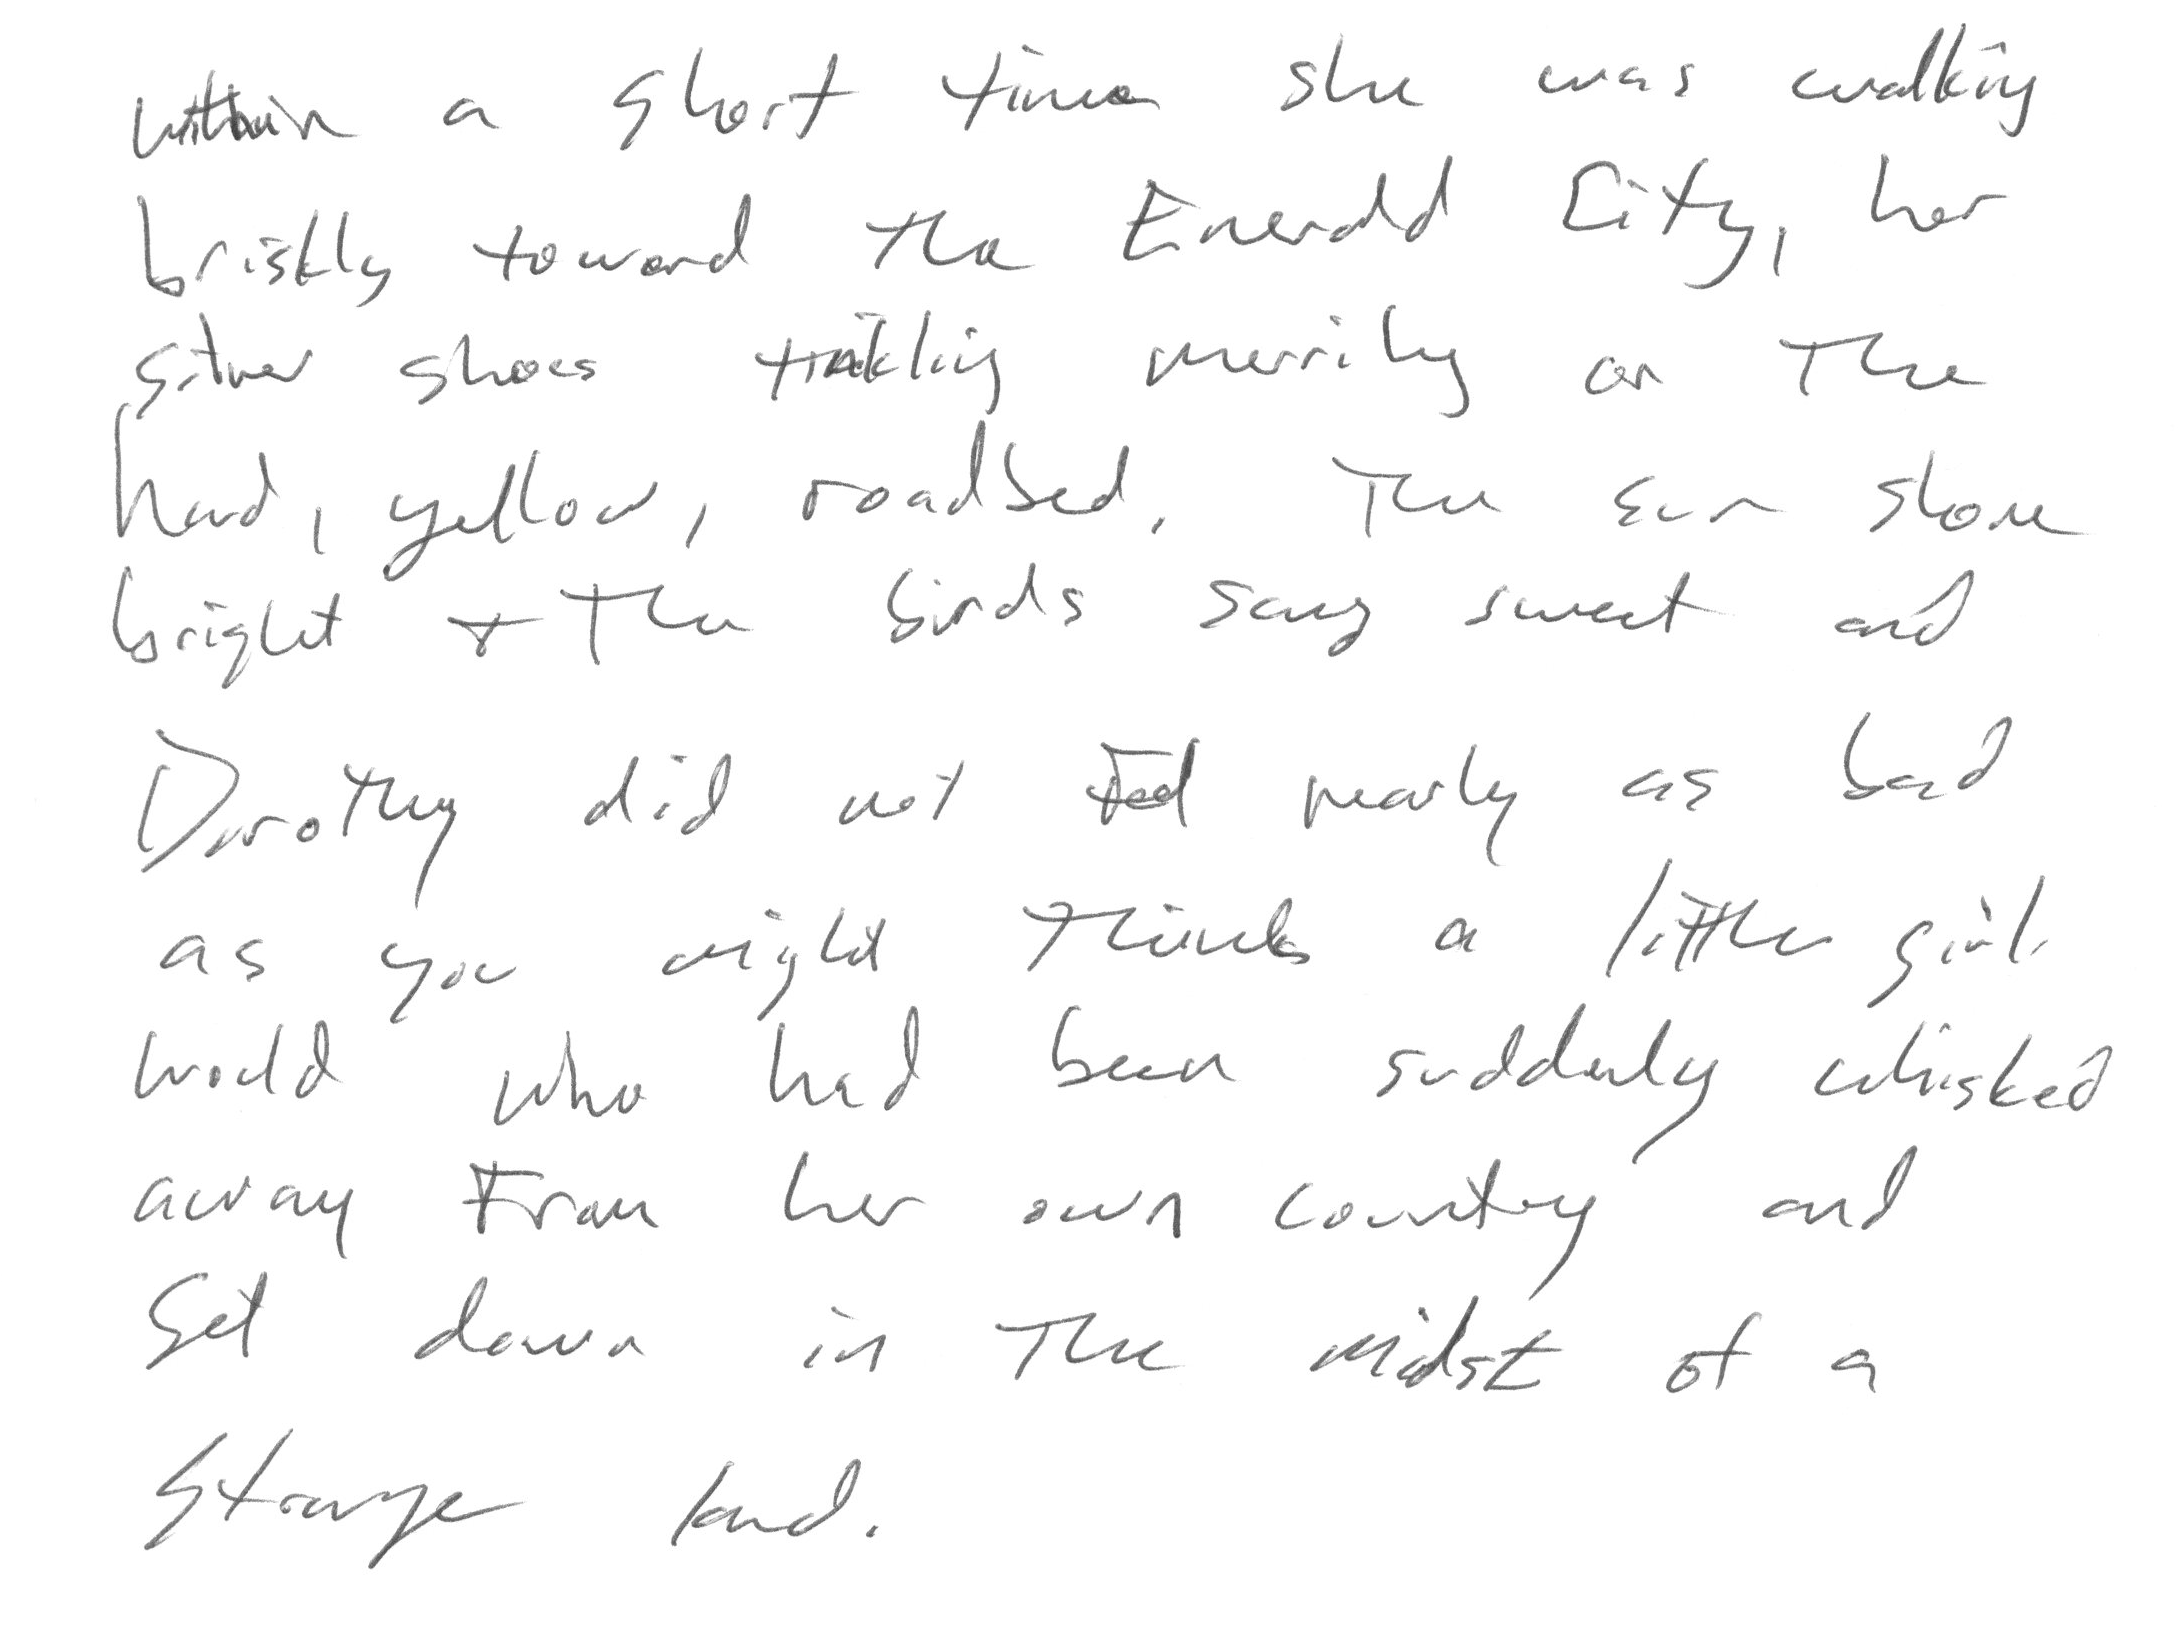 within a short time she was walking
briskly toward the Emerald City, her
silver shoes tinkling merrily on The
hard, yellow, roadbed. The sun shone
bright + The birds sang sweet and
Dorothy did not Feel nearly as bad
as you might think a little girl
would who had been suddenly whisked
away From her own country and
Set down in The midst of a
Strange land.